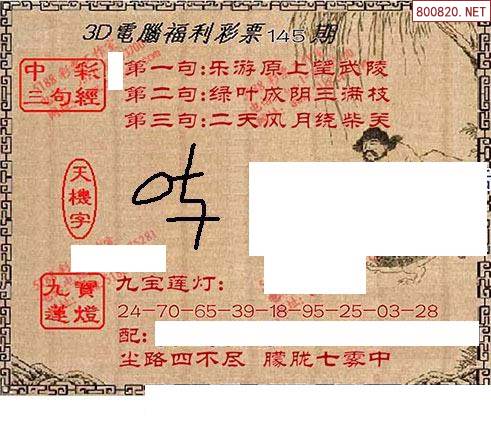 800820.NET
3D電腦福利彩票145期
中彩
三句經
第一句:乐游原上望武陵
第二句:绿叶成阴三满枝
第三句:二天风月绕柴关
天機字
九寶
蓮燈
九宝莲灯:
24-70-65-39-18-95-25-03-28
配:
尘路四不尽 朦胧七雾中